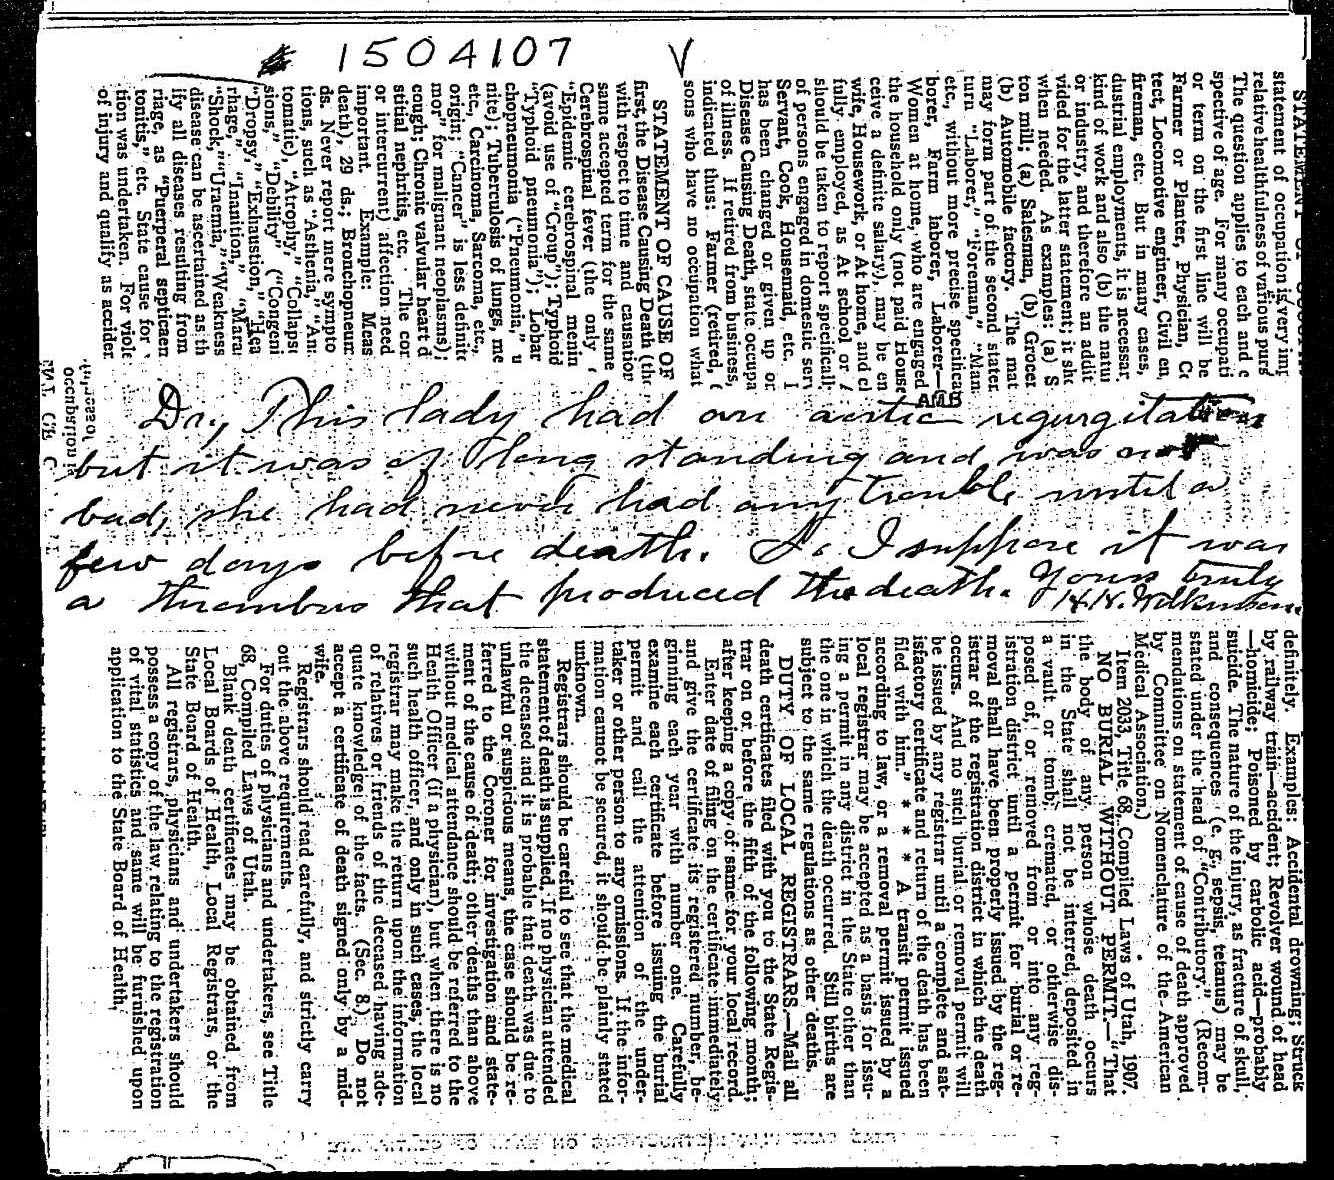 1504107 V
statement of occupation is very imp
relative healthfulness of various purs
The question applies to each and e
spective of age. For many occupati
or term on the first line will be
Farmer or Planter, Physician, Co
tect, Locomotive engineer, Civil en
fireman, etc. But in many cases,
dustrial employments, it is necessar
kind of work and also (b) the natur
or industry, and therefore an addit
vided for the latter statement; it sho
when needed. As examples: (a) S
ton mill; (a) Salesman, (b) Grocer
(b) Automobile factory. The mat
may form part of the second stater
turn "Laborer," "Foreman," "Man
etc., without more precise specificat
borer, Farm laborer, Laborer—
Women at home, who are engaged
the household only (not paid House
ceive a definite salary), may be en
wife, Housework, or At home, and cl
fully employed, as At school or A
should be taken to report specificall
of persons engaged in domestic serv
Servant, Cook, Housemaid, etc. I
has been changed or given up or
Disease Causing Death, state occupa
of illness. If retired from business,
indicated thus: Farmer (retired, 6
sons who have no occupation what
STATEMENT OF CAUSE OF
first, the Disease Causing Death (the
with respect to time and causation
same accepted term for the same
Cerebrospinal fever (the only
"Epidemic cerebrospinal menin
(avoid use of "Croup"); Typhoid
"Typhoid pneumonia"); Lobar
chopneumonia ("Pneumonia," u
nite); Tuberculosis of lungs, me
etc., Carcinoma, Sarcoma, etc.,
origin; "Cancer" is less definite
mor" for malignant neoplasms);
cough; Chronic valvular heart d
stitial nephritis, etc. The con
or intercurrent) affection need
important. Example: Meas
death), 29 ds.; Bronchopneum
ds. Never report mere sympto
tions, such as "Asthenia," "An
tomatic), "Atrophy," "Collaps
sions," "Debility" ("Congeni
"Dropsy," "Exhaustion," "Hea
rhage," "Inanition," "Maras
"Shock," "Uraemia," "Weakness
disease can be ascertained as th
ify all diseases resulting from
riage, as "Puerperal septicaem
tonitis," etc. State cause for
tion was undertaken. For viole
of injury and qualify as acciden
Dr, This lady had an aortic regurgitation
but it was of long standing and was not
bad, she had never had any trouble until a
few days before death. So I suppose it was
a thrombus that produced the death. Yours truly
H.N. Wilkinson.
definitely. Examples: Accidental drowning; Struck
by railway train—accident; Revolver wound of head
—homicide; Poisoned by carbolic acid—probably
suicide. The nature of the injury, as fracture of skull,
and consequences (e. g., sepsis, tetanus) may be
stated under the head of "Contributory." (Recom-
mendations on statement of cause of death approved
by Committee on Nomenclature of the American
Medical Association.)
Item 2033, Title 68, Compiled Laws of Utah, 1907.
NO BURIAL WITHOUT PERMIT.—"That
the body of any person whose death occurs
in the State shall not be interred, deposited in
a vault or tomb, cremated, or otherwise dis-
posed of, or removed from or into any reg-
istration district until a permit for burial or re-
moval shall have been properly issued by the reg-
istrar of the registration district in which the death
occurs. And no such burial or removal permit will
be issued by any registrar until a complete and sat-
isfactory certificate and return of the death has been
filed with him." * * * A transit permit issued
according to law, or a removal permit issued by a
local registrar may be accepted as a basis for issu-
ing a permit in any district in the State other than
the one in which the death occurred. Still births are
subject to the same regulations as other deaths.
DUTY OF LOCAL REGISTRARS.—Mail all
death certificates filed with you to the State Regis-
trar on or before the fifth of the following month;
after keeping a copy of same for your local record.
Enter date of filing on the certificate immediately
and give the certificate its registered number, be-
ginning each year with number one. Carefully
examine each certificate before issuing the burial
permit and call the attention of the under-
taker or other person to any omissions. If the infor-
mation cannot be secured, it should be plainly stated
unknown.
Registrars should be careful to see that the medical
statement of death is supplied. If no physician attended
the deceased and it is probable that death was due to
unlawful or suspicious means, the case should be re-
ferred to the Coroner for investigation and state-
ment of the cause of death; other deaths than above
without medical attendance should be referred to the
Health Officer (if a physician), but when there is no
such health officer, and only in such cases, the local
registrar may make the return upon the information
of relatives or friends of the deceased having ade-
quate knowledge of the facts. (Sec. 8.) Do not
accept a certificate of death signed only by a mid-
wife.
Registrars should read carefully, and strictly carry
out the above requirements.
For duties of physicians and undertakers, see Title
68, Compiled Laws of Utah.
Blank death certificates may be obtained from
Local Boards of Health, Local Registrars, or the
State Board of Health.
All registrars, physicians and undertakers should
possess a copy of the law relating to the registration
of vital statistics and same will be furnished upon
application to the State Board of Health.